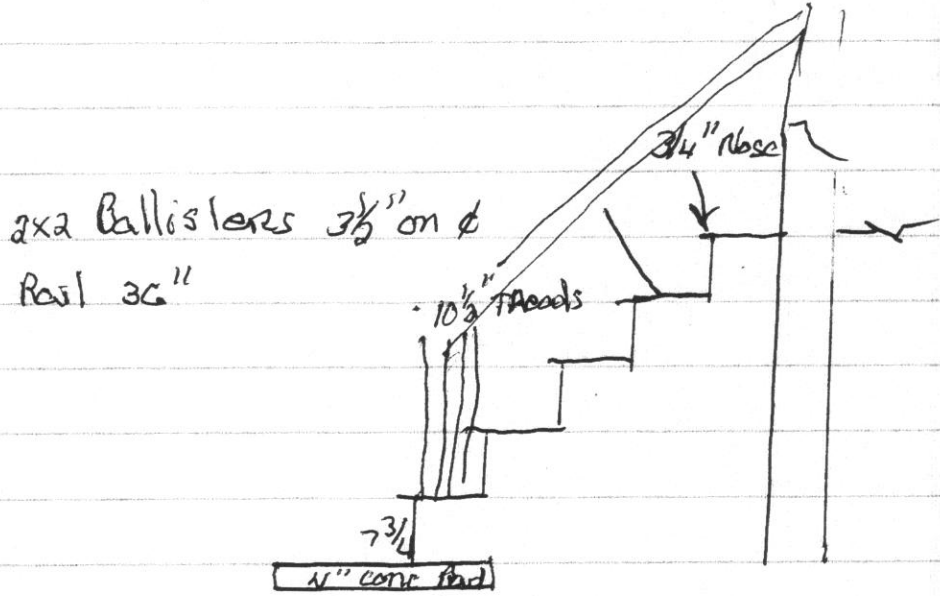 3/4" Nose
2x2 Ballisters 3½" on ¢
Rail 36"
10½" Treads
7 3/4
4" conc Pad